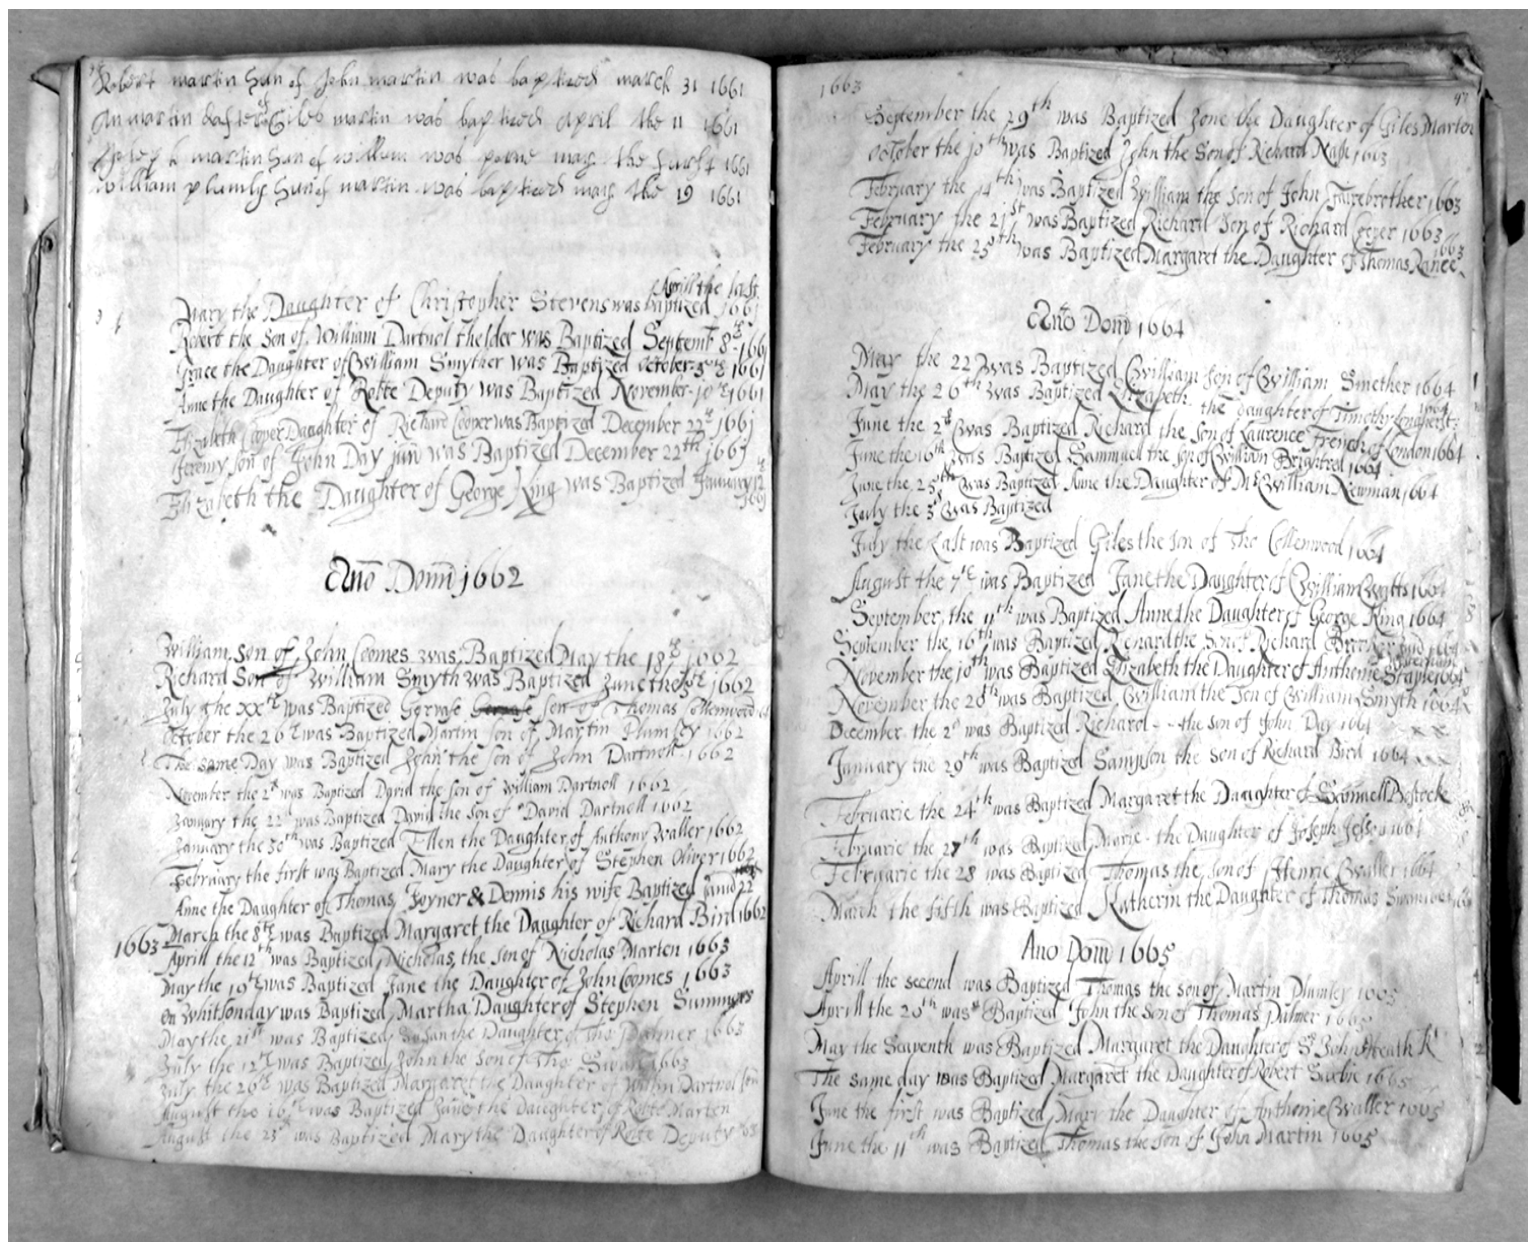 Robert martin Sun of John martin was baptized march 31 1661
An martin dafter of Giles martin was baptized April the 11 1661
Joseph martin Sun of willem was borne may the 1661
William plumly Sun of martin was baptized may the 19 1661
Aprill the last
Mary the Daughter of Christopher Stevens was Baptized 1661
Robert the Son of William Dartnol thelder was Baptized Septemb 8th 1661
Grace the Daughter of William Smyther was Baptized October 1661
Anne the Daughter of Robte Deputy was Baptized November 10th 1661
Elizabeth Cooper Daughter of Richard Cooper was Baptized December 22th 1661
Jeremy son of John Day jun was Baptized December 22th 1661
Elizabeth the Daughter of George King was Baptized January 12th
1661
Ano Domi 1662
William Son of John Coomes was Baptized May the 18th 1662
Richard Son of William Smyth was Baptized June the 1662
July the xxth was Baptized Gervase son of Thomas Collenwood
October the 26th was Baptized Martin Son of Martin Plumley 1662
The same Day was Baptized John the Son of John Dartnoll 1662
November the 2th was Baptized David the Son of William Dartnoll 1662
January the 22th was Baptized David the Son of David Dartnoll 1662
January the 30th was Baptized Ellen the Daughter of Anthony Waller 1662
February the first was Baptized Mary the Daughter of Stephen Oliver 1662
Anne the Daughter of Thomas Joyner & Dennis his wife Baptized 22
March the 8th was Baptized Margaret the Daughter of Richard Bird 1662
1663 Aprill the 12th was Baptized Nicholas the son of Nicholas Marten 1663
May the 19th was Baptized Jane the Daughter of John Coomes 1663
On Whitsonday was Baptized Martha Daughter of Stephen Summers
May the 21st was Baptized Susan the Daughter of Tho Palmer 1663
July the 12th was Baptized John the Son of Tho Swan 1663
July the 26th was Baptized Margaret the Daughter of Willm Dartnol
August the 16th was Baptized Jane the Daughter of Robte Marten
August the 23th was Baptized Mary the Daughter of Robte Deputy 63
1663
47
September the 29th was Baptized Jone the Daughter of Giles Marten
October the 10th was Baptized John the Son of Richard Nash 1663
February the 14th was Baptized William the Son of John Fairebrother 1663
February the 21st was Baptized Richard Son of Richard 1663
February the 25th was Baptized Margaret the Daughter of Thomas Ranee 1663
Ano Dom 1664
May the 22 was Baptized William Son of William Smether 1664
May the 26th was Baptized Elizabeth the daughter of Timothy Longherst 1664
June the 2d was Baptized Richard the Son of Laurence French of London 1664
June the 16th was Baptized Sammuel the Son of William Brightred 1664
June the 25th was Baptized Anne the Daughter of Mr William Newman 1664
July the 3d was Baptized
July the Last was Baptized Giles the Son of Tho Collenwood 1664
August the 7th was Baptized Jane the Daughter of William 1664
September the 11th was Baptized Anne the Daughter of George King 1664
September the 16th was Baptized the Son of Richard
November the 10th was Baptized Elizabeth the Daughter of Anthonie Staple 1664
November the 20th was Baptized William the Son of William Smyth 1664
December the 2d was Baptized Richard - - the son of John Day 1664
January the 29th was Baptized Sampson the Son of Richard Bird 1664
Februarie the 24th was Baptized Margaret the Daughter of Samuell Bostock
Februarie the 27th was Baptized Marie the Daughter of Joseph 1664
Februarie the 28 was Baptized Thomas the son of Henrie Waller 1664
March the fifth was Baptized Katherin the Daughter of Thomas
Ano Dom 1665
Aprill the second was Baptized Thomas the son of Martin Plumley 1665
Aprill the 20th was Baptized John the Son of Thomas Palmer 1665
May the Seaventh was Baptized Margaret the Daughter of Sr John Heath Kt
The same day was Baptized Margaret the Daughter of Robert 1665
June the first was Baptized Mary the Daughter of Anthonie Waller 1665
June the 11th was Baptized Thomas the Son of John Martin 1665